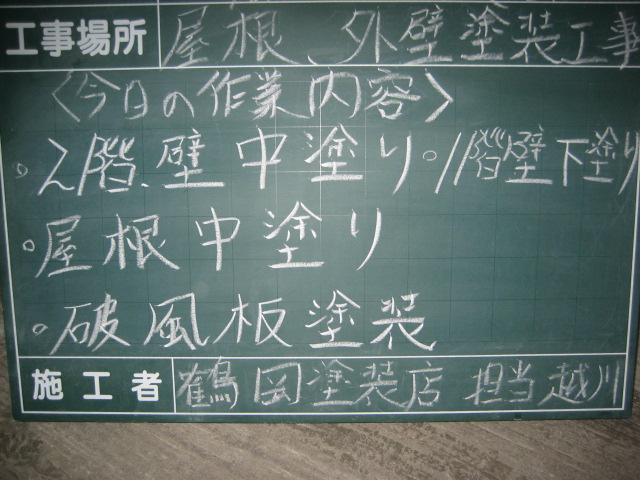 工事場所 屋根、外壁塗装工事
〈今日の作業内容〉
○2階壁中塗り○1階壁下塗り
○屋根中塗り
○破風板塗装
施工者 鶴岡塗装店 担当越川